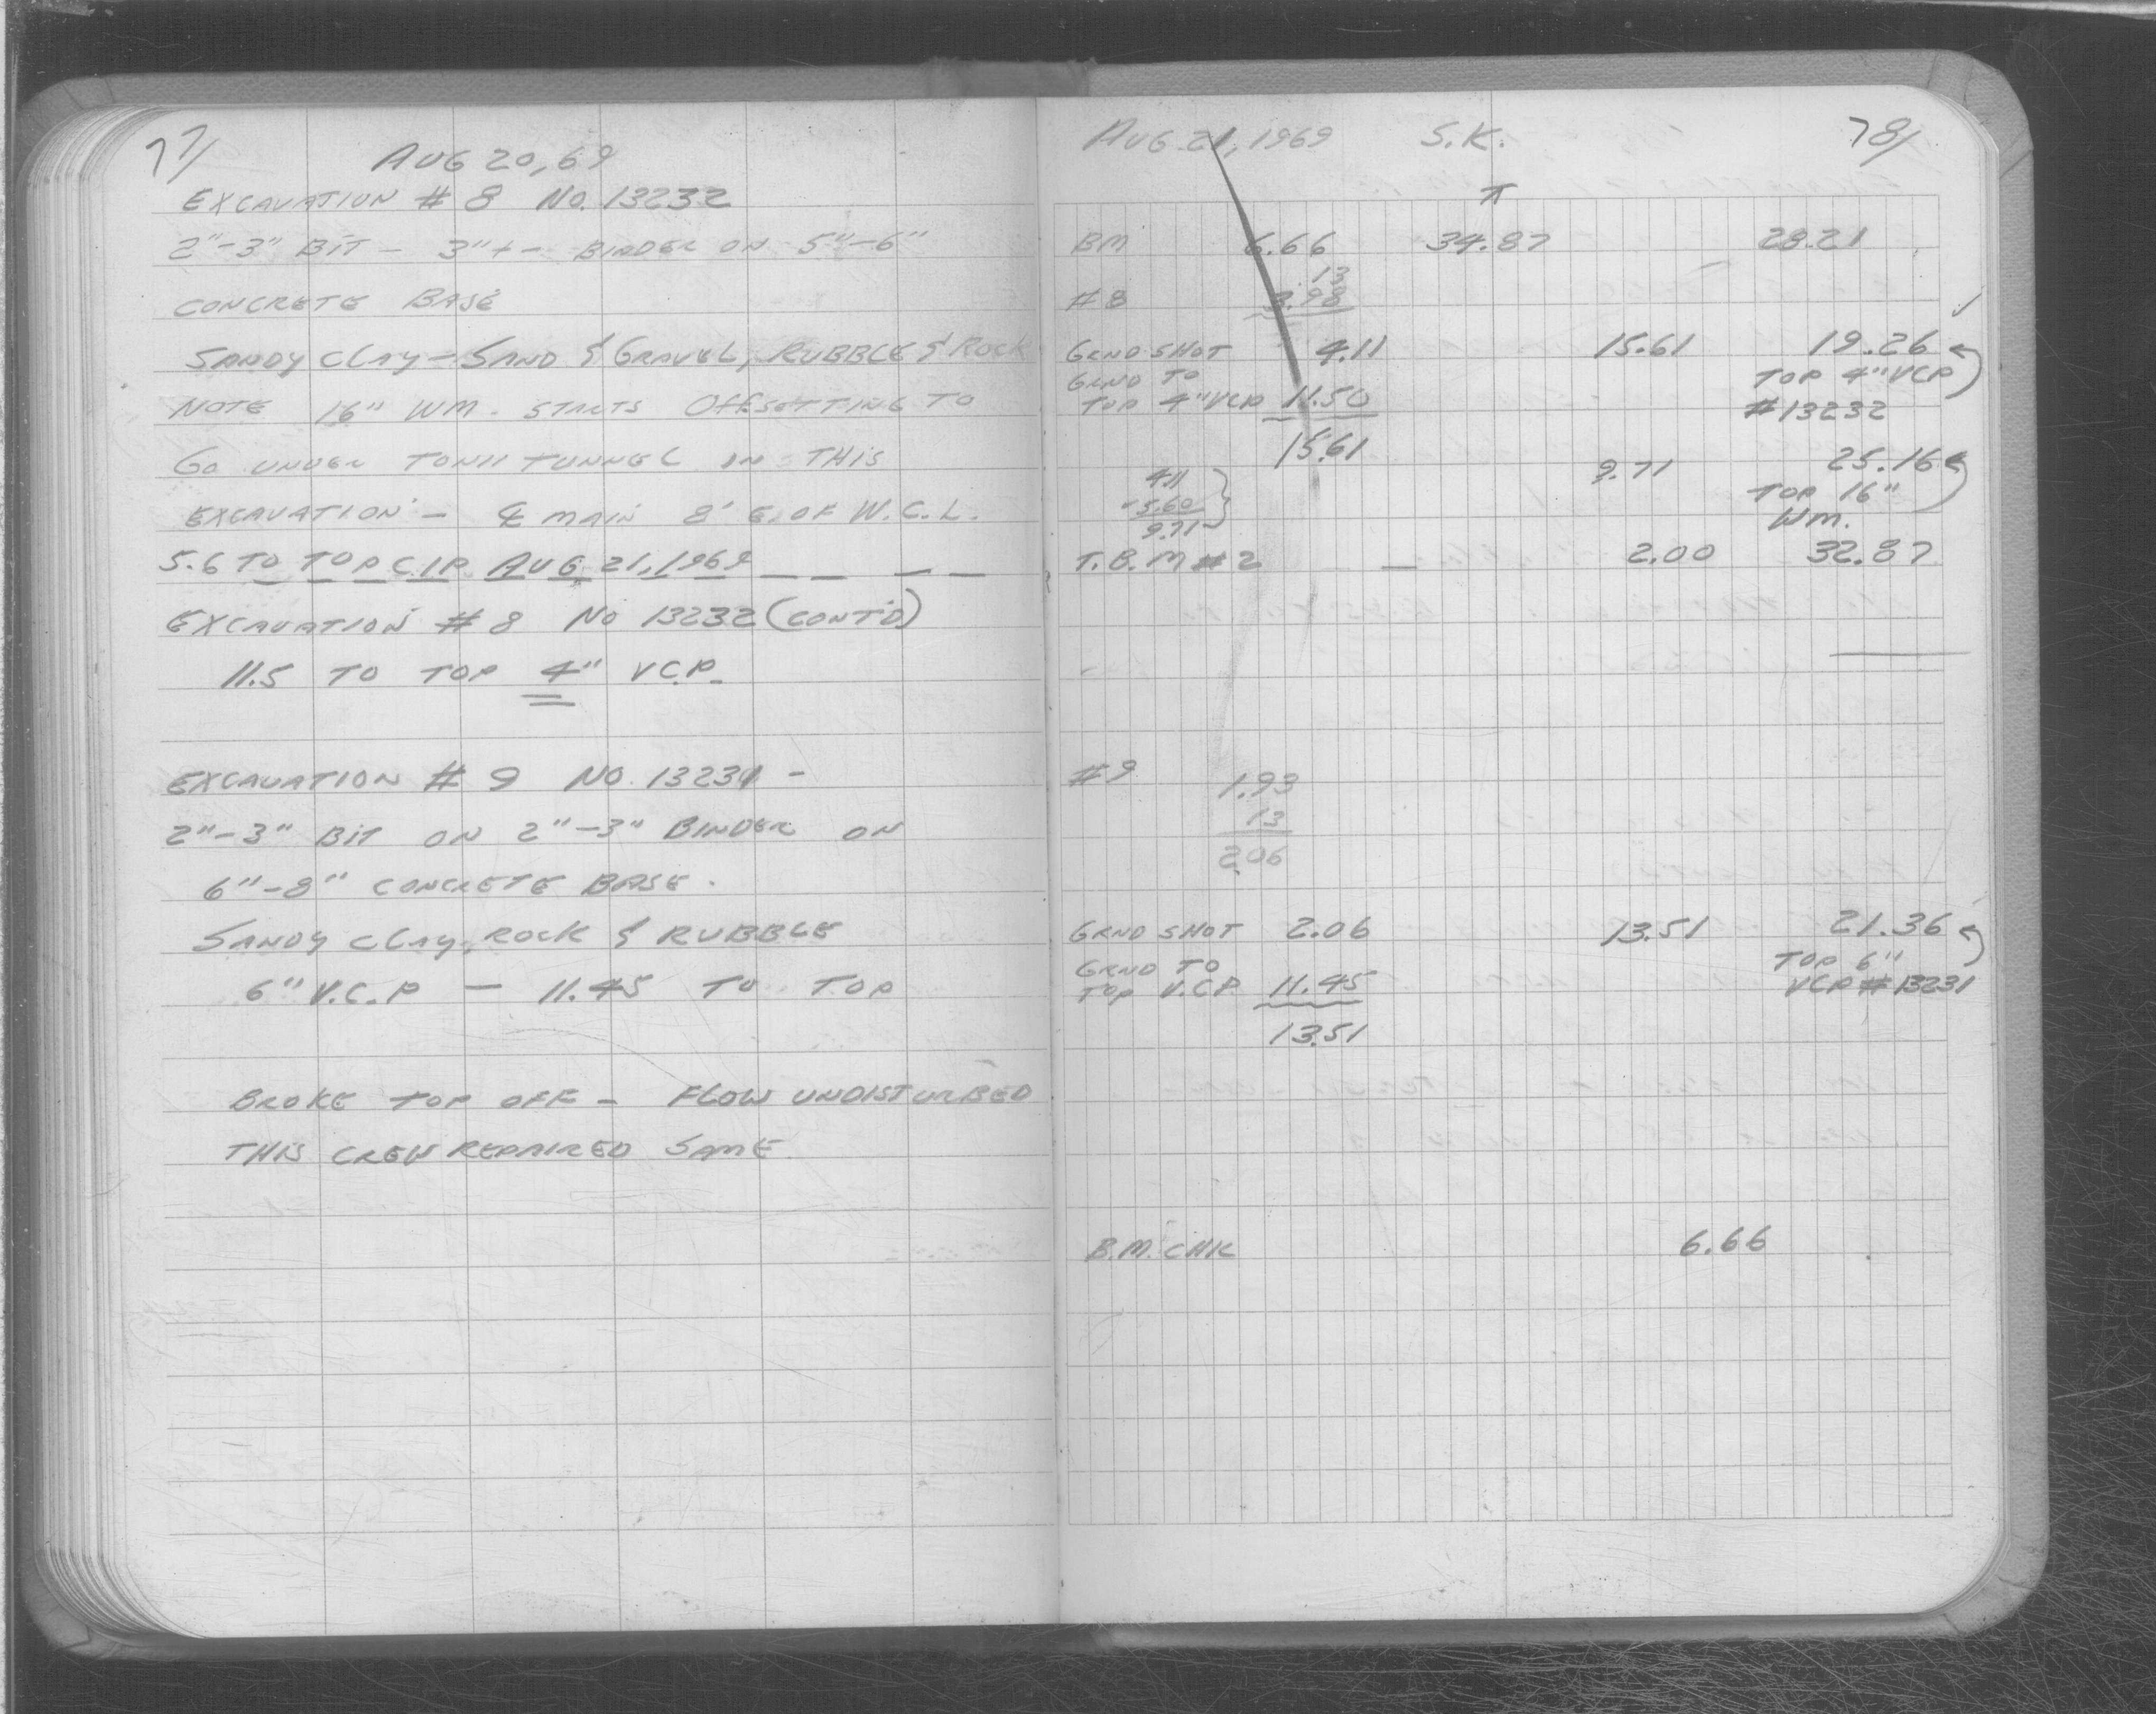 77/
AUG 20, 69
EXCAVATION # 8 NO. 13232
2"-3" BIT - 3"+- BINDER ON 5"-6"
CONCRETE BASE
SANDY CLAY - SAND & GRAVEL, RUBBLE & ROCK
NOTE 16" WM. STARTS OFFSETTING TO
GO UNDER TUNNEL IN THIS
EXCAVATION - ℄ MAIN 8' E. OF W.C.L.
5.6 TO TOP C.I.P. AUG 21, 1969
EXCAVATION # 8 NO 13232 (CONT'D)
11.5 TO TOP 4" V.C.P.
EXCAVATION # 9 NO. 13231 -
2"-3" BIT ON 2"-3" BINDER ON
6"-8" CONCRETE BASE.
SANDY CLAY, ROCK & RUBBLE
6" V.C.P - 11.45 TO TOP
BROKE TOP OFF - FLOW UNDISTURBED
THIS CREW REPAIRED SAME
AUG 21, 1969 S.K. 78/
⊼
BM 6.66 34.87 28.21
13
#8 3.98
GRND SHOT 4.11 15.61 19.26
GRND TO TOP 4" VCP
TOP 4" VCP 11.50 #13232
15.61
9.71 25.16
4.11 TOP 16"
5.60 WM.
9.71
T.B.M #2 — 2.00 32.87
#9 1.93
13
2.06
GRND SHOT 2.06 13.51 21.36
GRND TO TOP 6"
TOP V.C.P. 11.45 VCP #13231
13.51
B.M. CHK 6.66